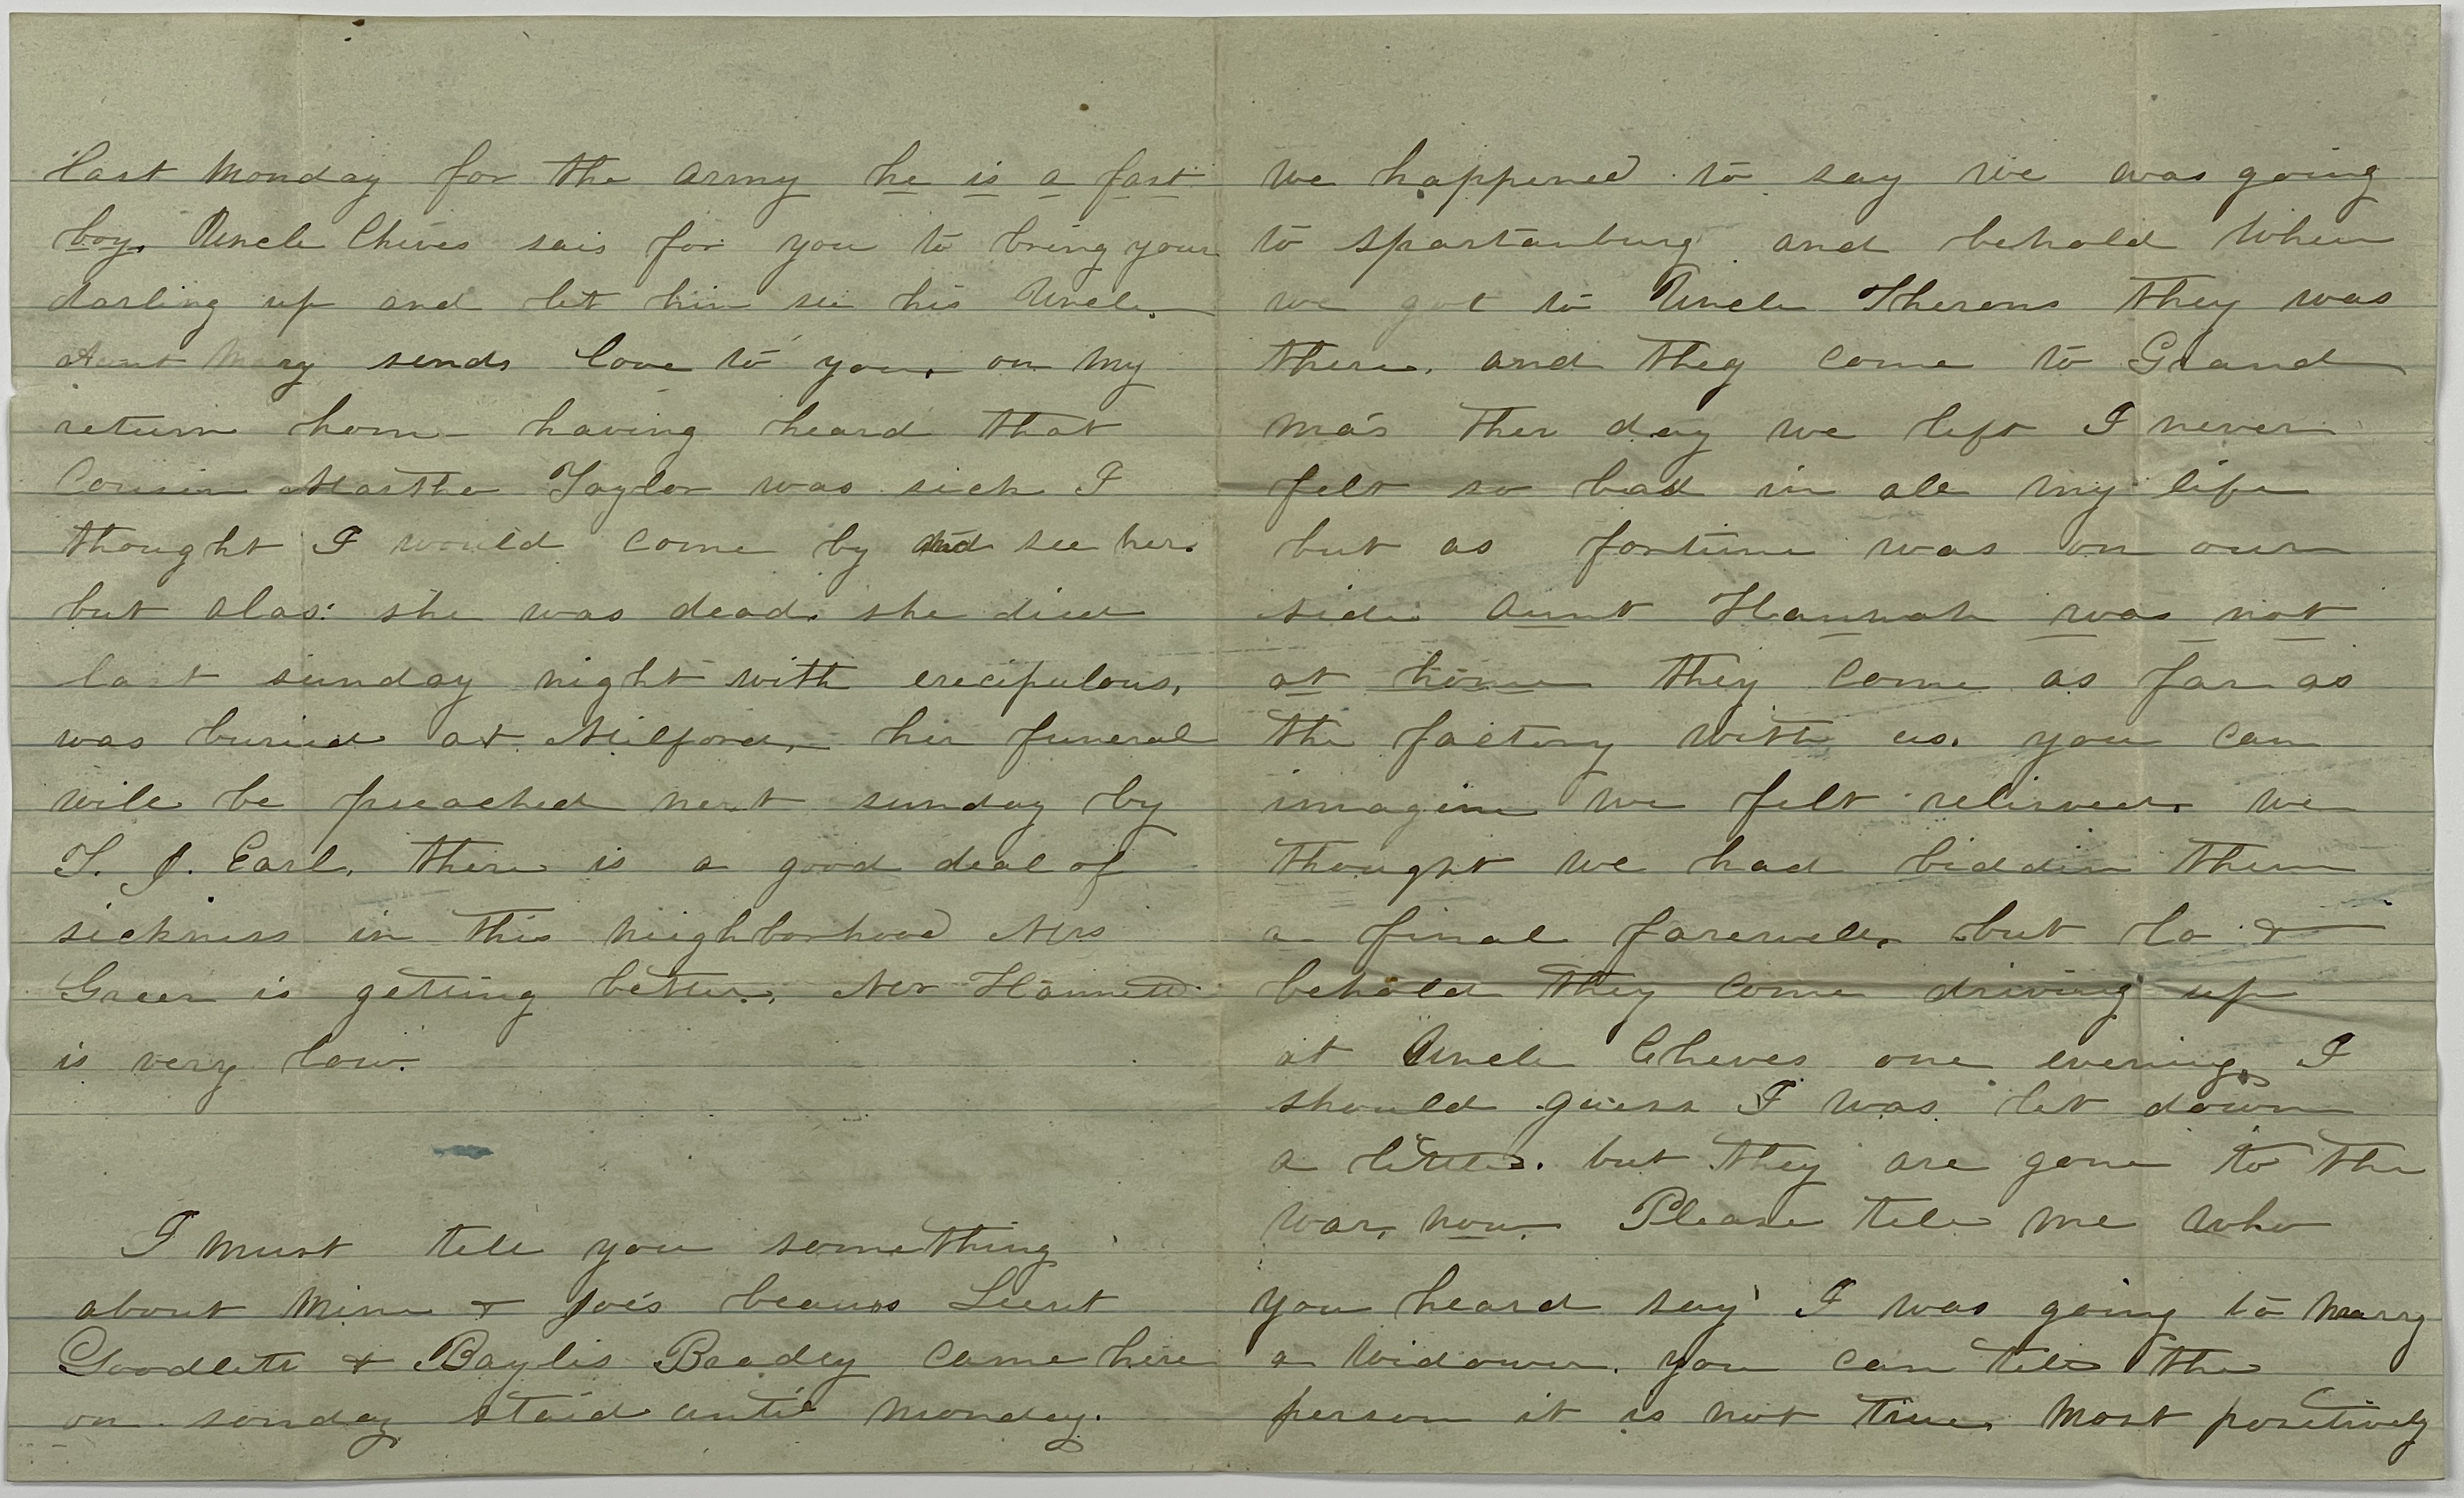 last Monday for the army he is a fast
boy. Uncle Cheves sais for you to bring your
darling up and let him see his Uncle.
Aunt Mary sends love to you. on my
return home having heard that
Cousin Martha Taylor was sick I
thought I would come by and see her.
but alas: she was dead. she died
last sunday night with erecipulous,
was buried at Milford, her funeral
will be preached next sunday by
T. J. Earl. there is a good deal of
sickness in this neighborhood Mrs
Green is getting better, Mr Hannett
is very low.
I must tell you something
about Mine & Joe's beauos Lieut
Goodlett & Baylis Bradey came here
on sonday staid until monday.
we happened to say we was going
to spartanburg and behold when
we got to Uncle Therons they was
there. and they come to Grand
ma's ther day we left I never
felt so bad in all my life
but as fortune was on our
side Aunt Hannah was not
at home they come as far as
the factory with us. you can
imagine we felt relieved. we
thought we had biddin them
a final farewell. but lo &
behold they come driving up
at Uncle Cheves one evening. I
should guess I was let down
a little. but they are gone to the
war, now. Please tell me who
you heard say I was going to marry
a widower. you can tell the
person it is not true. most positively